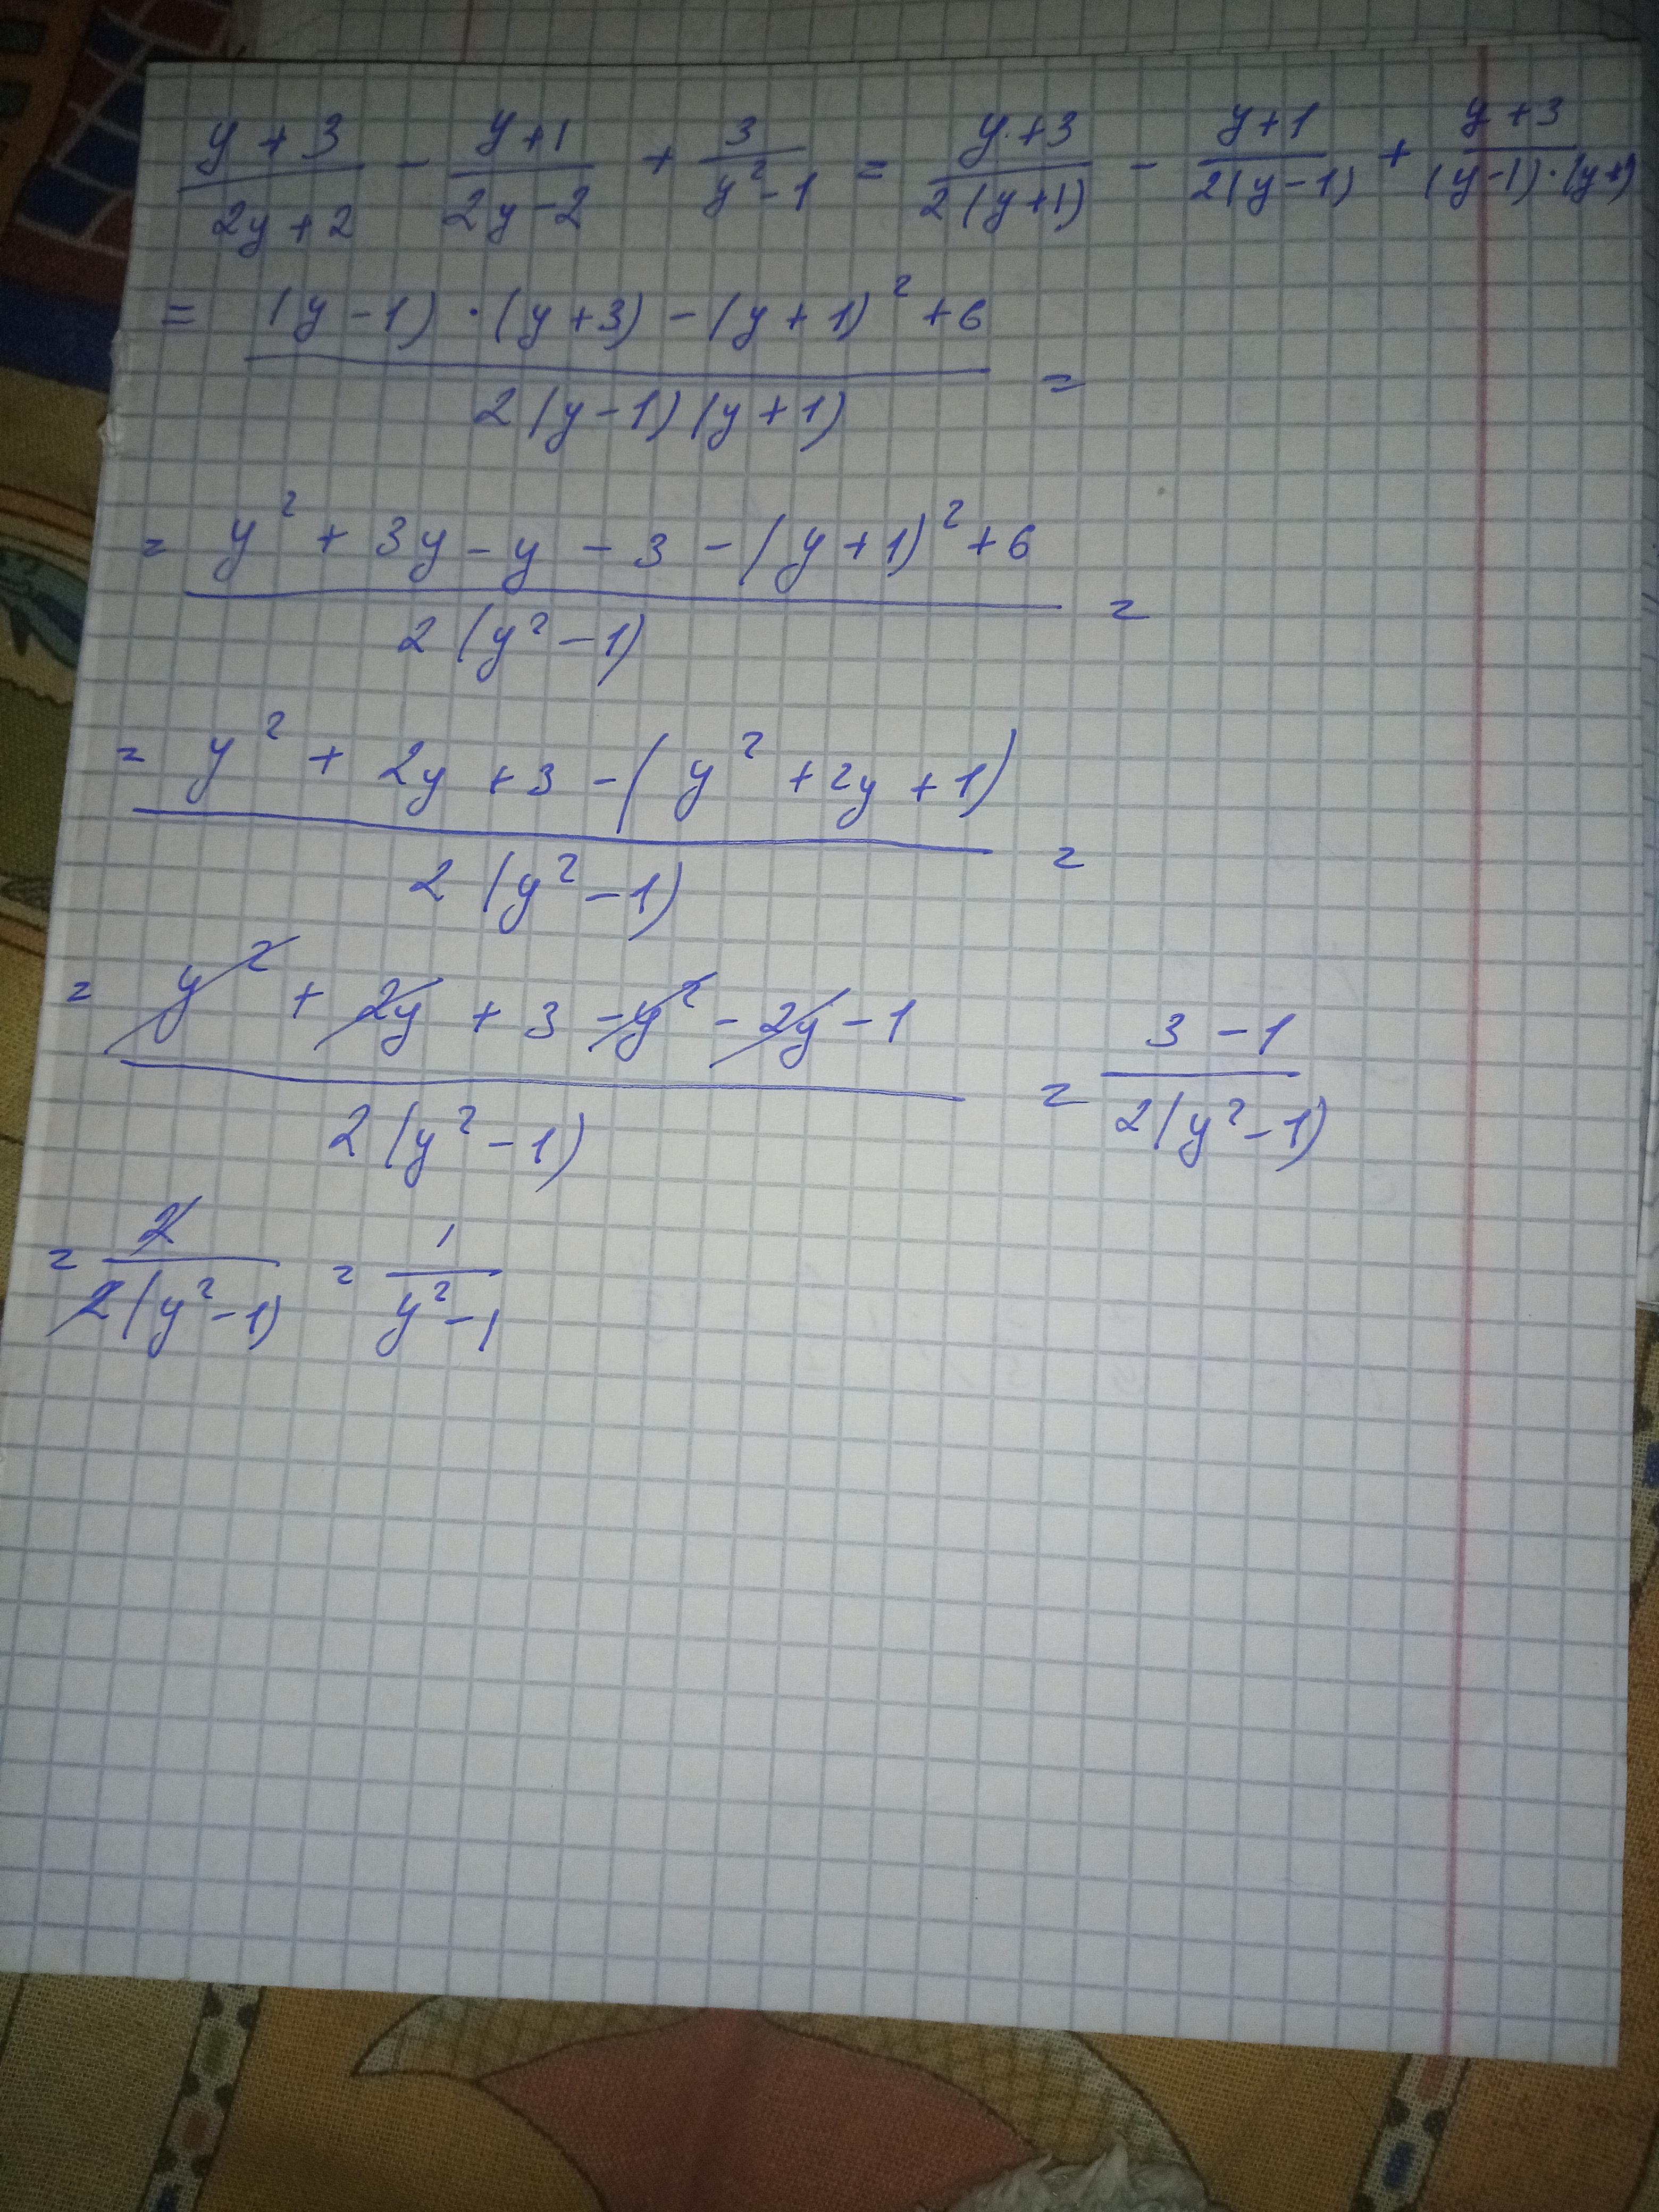 (y + 3)/(2y + 2) - (y + 1)/(2y - 2) + 3/(y² - 1) = (y + 3)/(2(y + 1)) - (y + 1)/(2(y - 1)) + (y + 3)/((y - 1)·(y + 1))
= ((y - 1)·(y + 3) - (y + 1)² + 6)/(2(y - 1)(y + 1)) =
= (y² + 3y - y - 3 - (y + 1)² + 6)/(2(y² - 1)) =
= (y² + 2y + 3 - (y² + 2y + 1))/(2(y² - 1)) =
= (y² + 2y + 3 - y² - 2y - 1)/(2(y² - 1)) = (3 - 1)/(2(y² - 1))
= 2/(2(y² - 1)) = 1/(y² - 1)